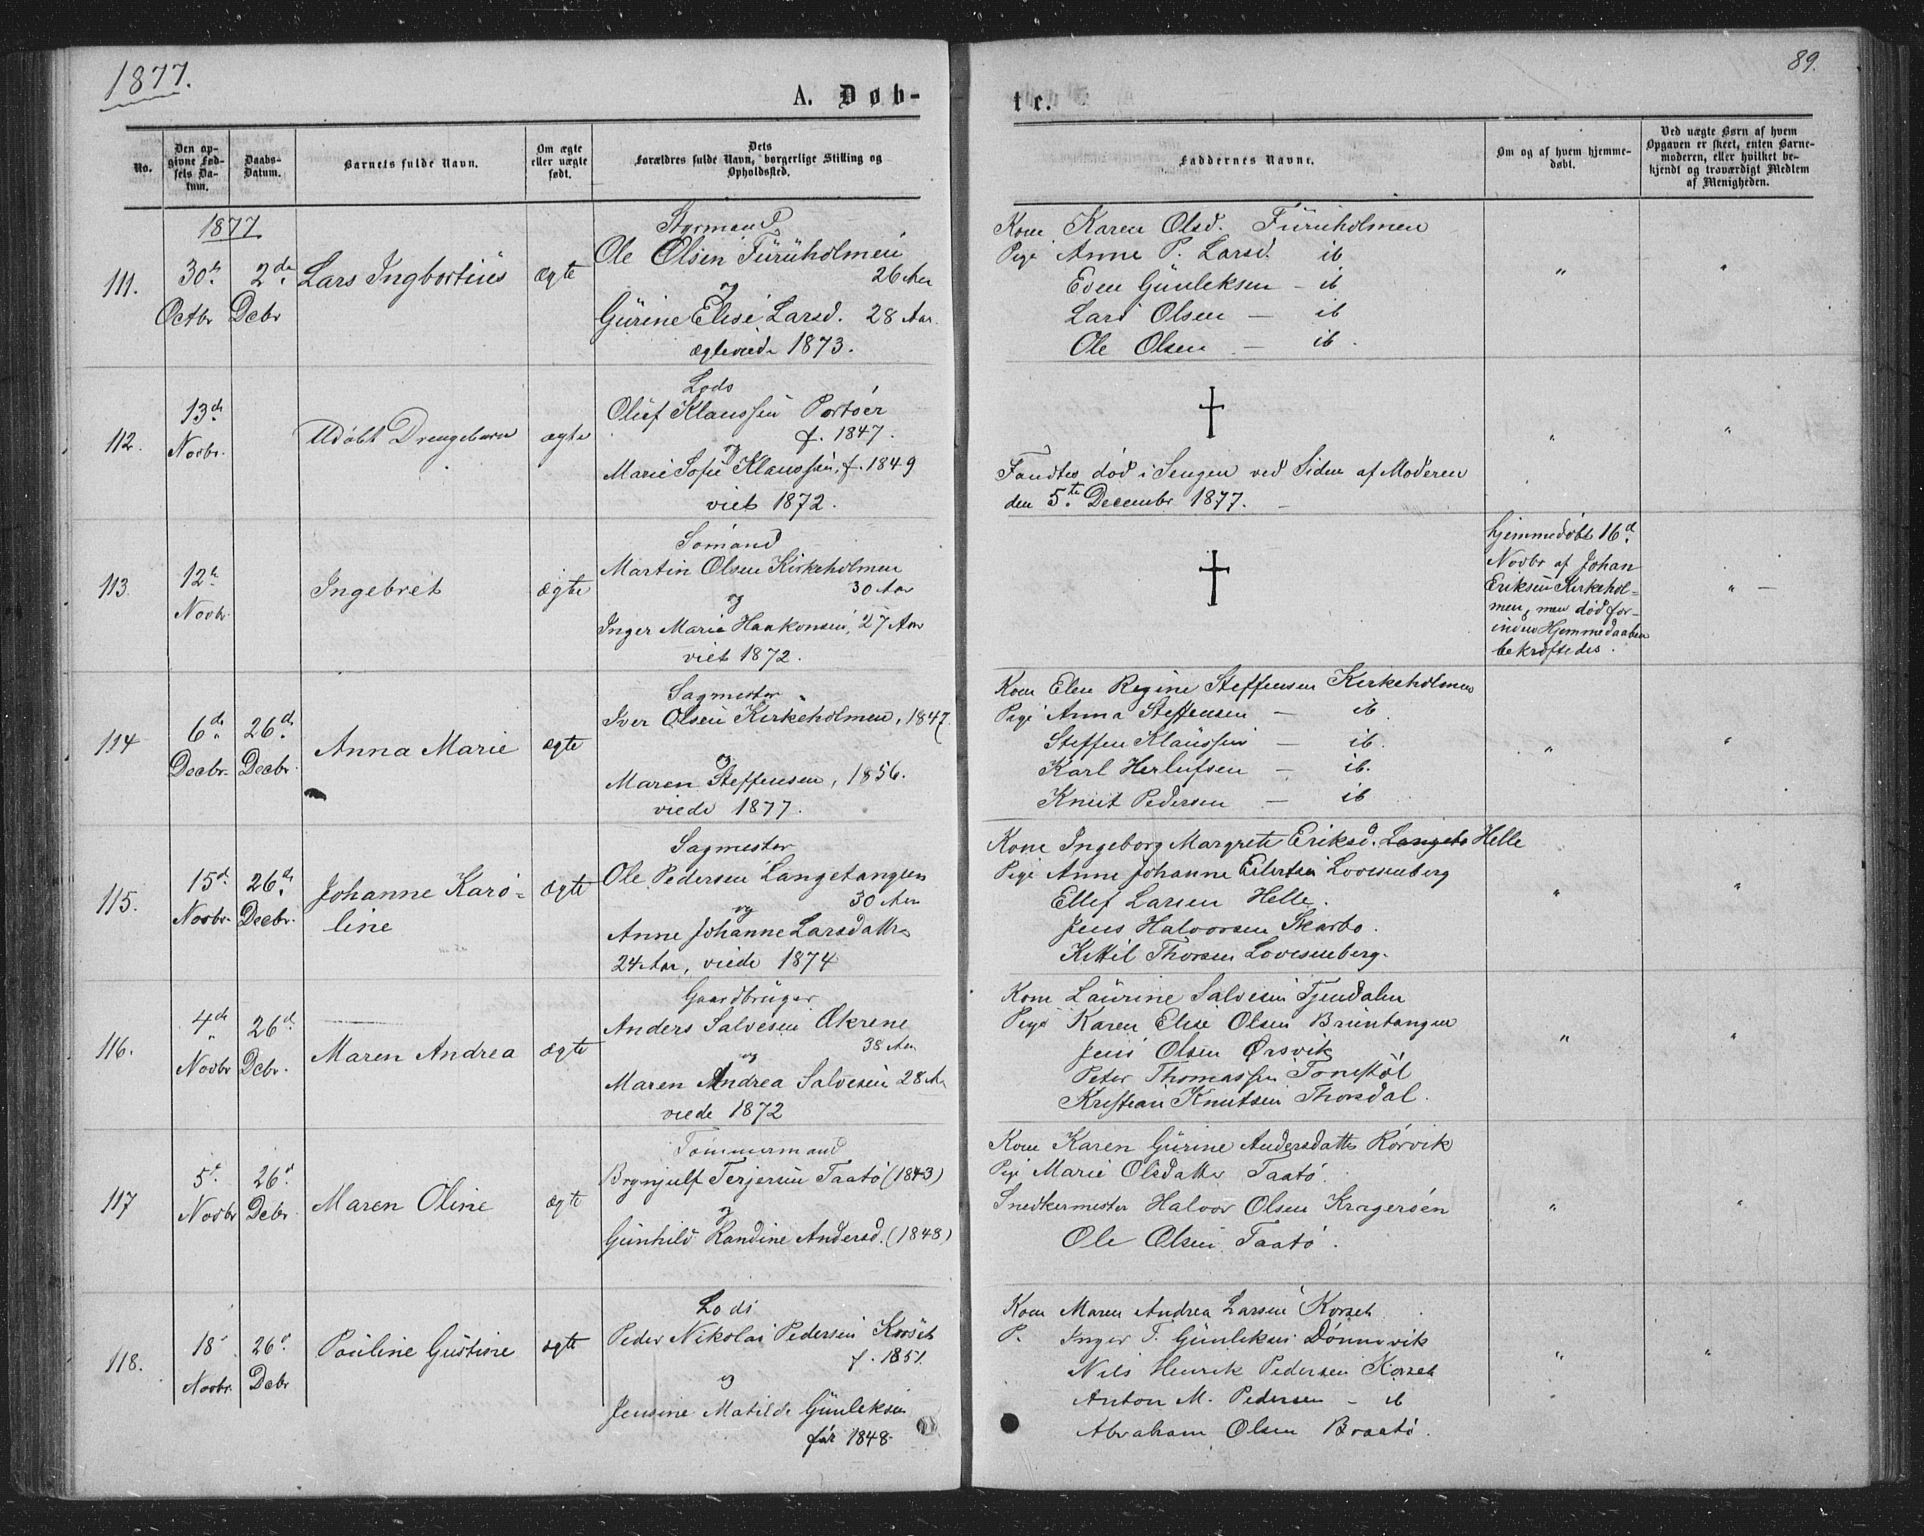 1877.
89.
A. Døb-
te.
No.
Den op-
givne Fød-
sels Da-
tum.
Daabs-
Datum.
Barnets fulde Navn.
Om ægte
eller uægte
født.
Dets
Forældres fulde Navn, borgerlige Stilling og
Opholdssted.
Faddernes Navne.
Om og af hvem hjemme-
døbt.
Ved uægte Børn af hvem
Opgaven er skeet, enten Barne-
moderen, eller hvilket be-
kjendt og troværdigt Medlem
af Menigheden.
1877
111.
30te
Octbr
2de
Decbr
Lars Ingbortius
ægte
Styrmand
Ole Olsen Furuholmen
26 Aar
og
Gurine Elise Larsd. 28 Aar.
ægteviede 1873.
Kone Karen Olsd. Furuholmen
Pige Anne P. Larsd. ib
Even Gunleksen - ib
Lars Olsen - ib
Ole Olsen - ib.
"
"
112.
13de
Novbr.
Udøbt Drengebarn
ægte
Lods
Oluf Klaussen Portøer
f. 1847.
og
Marie Sofie Klaussen, f. 1849
viet 1872.
†
Fandtes død i Sengen ved Siden af Moderen
den 5te Decembr 1877. -
"
"
113.
12te
Novbr.
Ingebret
ægte
Sømand
Martin Olsen Kirkeholmen
30 Aar
og
Inger Marie Haakonsen, 27 Aar
viet 1872.
†
hjemmedøbt 16d.
Novbr af Johan
Eriksen Kirkehol-
men, men død for-
inden Hjemmedaaben
bekræftedes.
" -
114
6de
Decbr.
26de
Decbr.
Anna Marie
ægte
Sagmester
Iver Olsen Kirkeholmen, 1847.
og
Maren Steffensen, 1856.
viede 1877.
Kone Elen Regine Steffensen Kirkeholmen
Pige Anna Steffensen - ib.
Steffen Klaussen - ib.
Karl Herlufsen - ib.
Knut Pedersen - ib
"
"
115.
15de
Novbr.
26de
Decbr.
Johanne Karo-
line
ægte
Sagmester
Ole Pedersen Langetangen
30 Aar
og
Anne Johanne Larsdatter
24 Aar, viede 1874
Kone Ingeborg Margrete Eriksd. Langeto Helle
Pige Anne Johanne Eilertsen Lovisenberg
Ellef Larsen Helle.
Jens Halvorsen Skarbo.
Kittil Thorsen Lovisenberg.
"
"
116.
4de
Novbr
26de
Debr.
Maren Andrea
ægte
Gaardbruger
Anders Salvesen Økrene
38 Aar
og
Maren Andrea Salvesen 28 Aa
viede 1872
Kone Laurine Salvesen Tjendalen
Pige Karen Elise Olsen Bruntangen
Jens Olsen Ørsvik
Peter Thomassen Tonstøl
Kristian Knutsen Thorsdal.
"
"
117
5te
Novbr
26d
Debr.
Maren Oline
ægte
Tømmermand
Brynjulf Terjesen Taatø (1843)
og
Gunhild Randine Andersd. (1848)
Kone Karen Gurine Andersdatter Rørvik
Pige Marie Olsdatter Taatø.
Snedkermester Halvor Olsen Kragerøen
Ole Olsen Taatø.
"
"
118.
18
Novbr.
26d
Debr
Pauline Gustine
ægte
Lods
Peder Nikolai Pedersen Korset
f. 1851.
og
Jensine Matilde Gunleksen
før 1848.
Kone Maren Andrea Larsen Korset
P. Inger T. Gunleksen Dønnevik
Nils Henrik Pedersen Korset
Anton M. Pedersen - ib
Abraham Olsen Braatø.
"
"